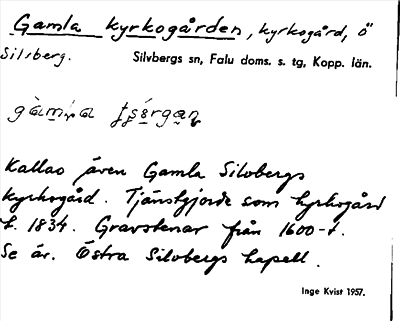 Gamla kyrkogården, kyrkogård, ö
Silvberg. Silvbergs sn, Falu doms. s. tg, Kopp. län.
Kallas även Gamla Silvbergs
kyrkogård. Tjänstgjorde som kyrkogård
t. 1834. Gravstenar från 1600-t.
Se äv. Östra Silvbergs kapell.
Inge Kvist 1957.